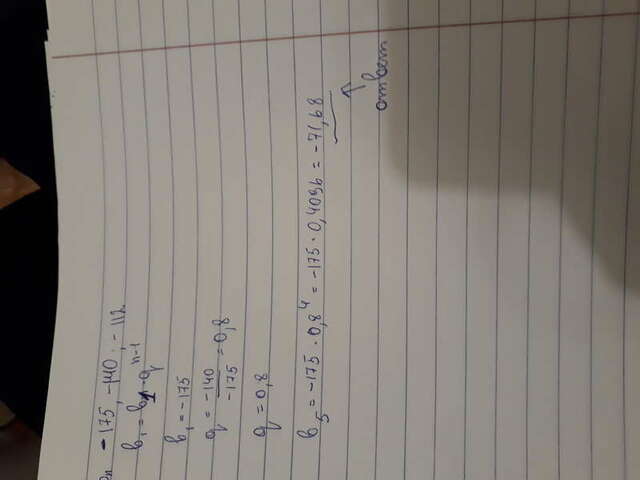 -175, -140; -112
b₁ = b₁·qⁿ⁻¹
b₁ = -175
q = -140/-175 = 0,8
q = 0,8
b₅ = -175 · 0,8⁴ = -175 · 0,4096 = -71,68
ответ